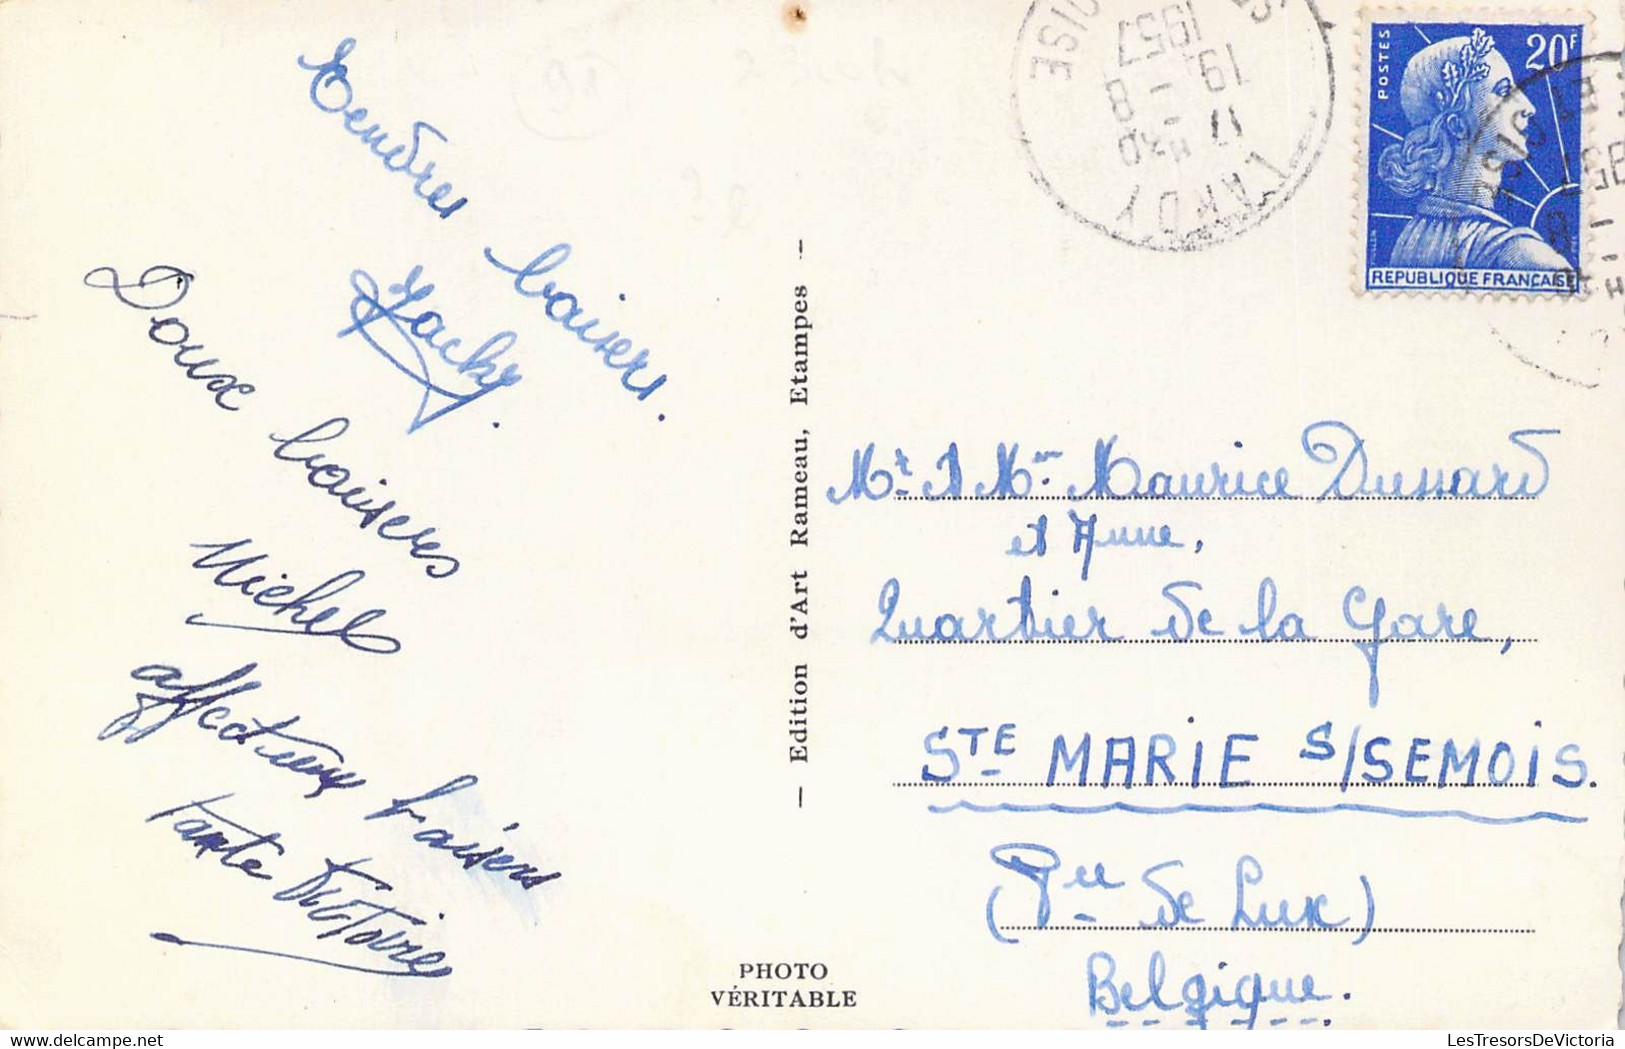 Tendres baisers.
Jacky.
Doux baisers
Michel
affectueux baisers
tante Victoire
— Edition d'Art Rameau, Etampes —
PHOTO
VÉRITABLE
LARDY
17 H30
19 - 8
1957
OISE
POSTES
20F
REPUBLIQUE FRANÇAISE
Mr. & Mme. Maurice Dussard
et Anne,
Quartier de la Gare,
STE MARIE S/SEMOIS.
(Pce de Lux)
Belgique.
LesTresorsDeVictoria